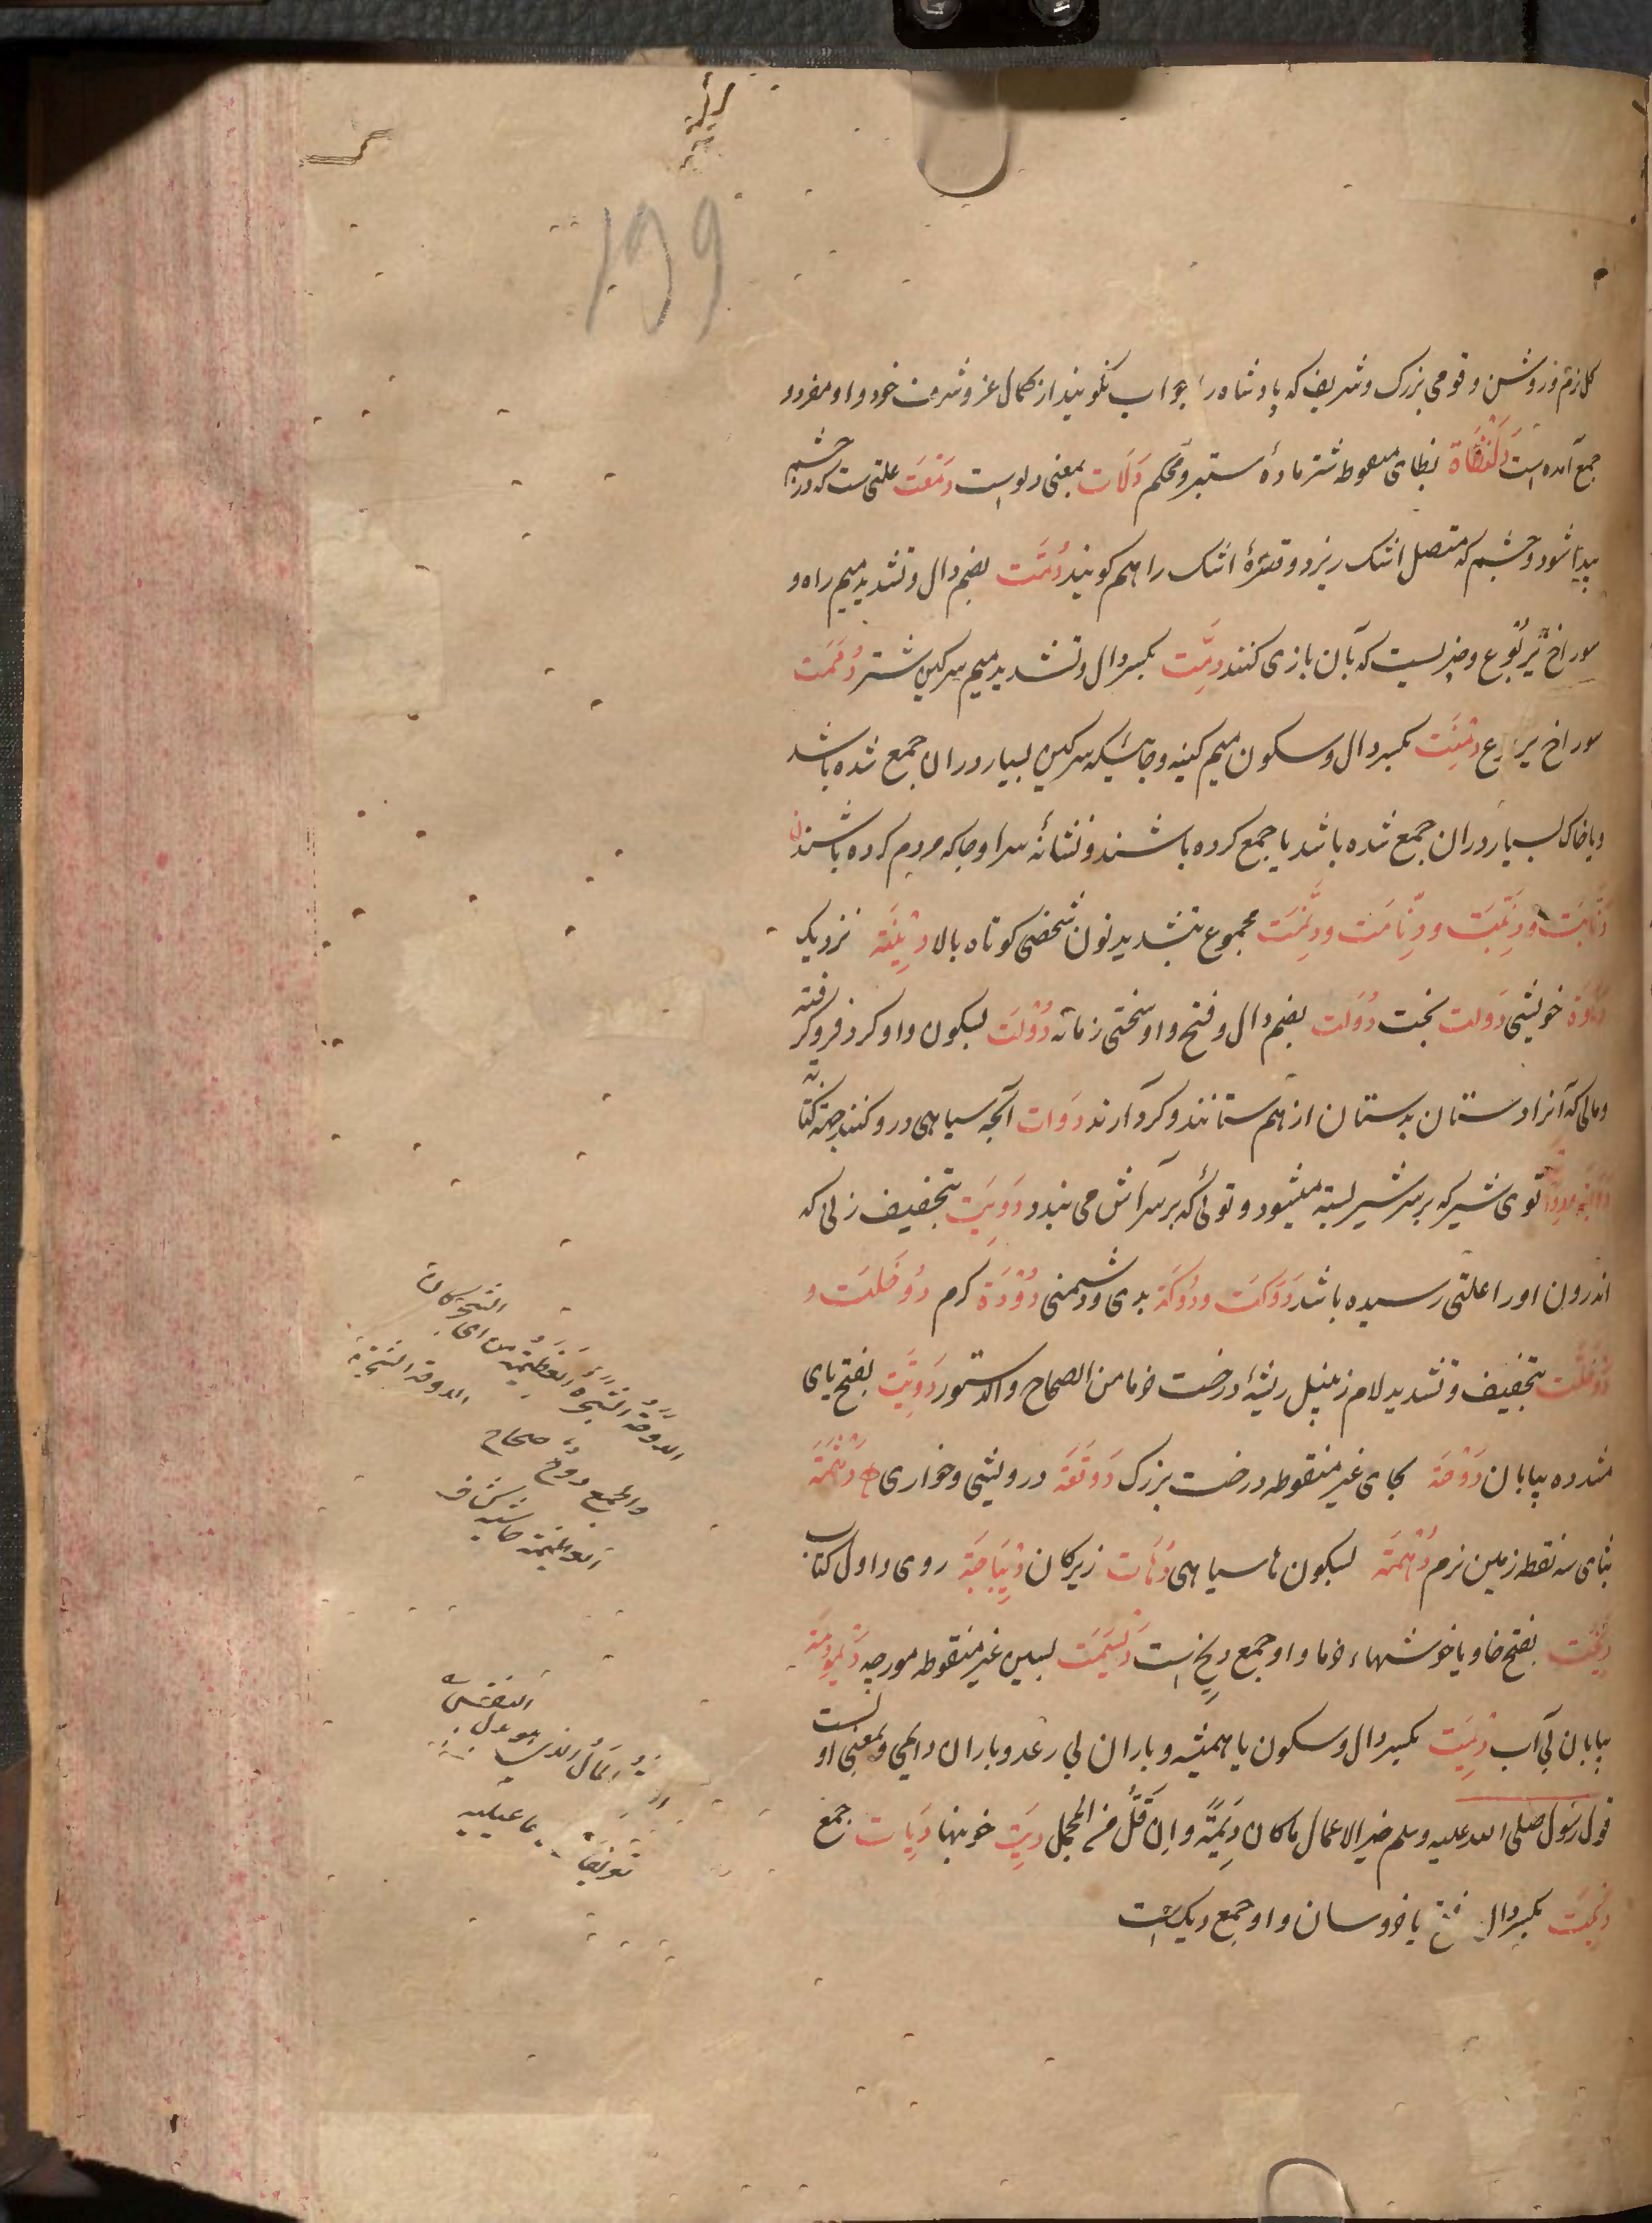 ۱۹۹
وقومی بزرک وشریف که پادشاه را جواب نکویند از کمال عز وشرف خود واو مفرد و
جمع آمده است دَلَنْظَاة بظای منقوطه شتر مادهٔ ستبر ومحکم دَلَات بمعنی دلوست دَمْعَت علتی ست که در چشم
پیدا شود وچشم که متصل اشک ریزد وقطرهٔ اشک را هم کویند دُمَّت بضم دال وتشدید میم راه و
سوراخ یربوع وچیزیست که بآن بازی کنند دِمَّت بکسر دال وتشدید میم سرکین شتر دُمَمَت
سوراخ یربوع دِمْنَت بکسر دال وسکون میم کینه وجائیکه سرکین بسیار دران جمع شده باشد
ویا خاک بسیار دران جمع شده باشد یا جمع کرده باشند ونشانهٔ سرا وجا که مردم کرده باشند
دِنَّابَت ودِنَّبَت ودِنَّامَت ودِنَّمَت مجموع بتشدید نون شخصی کوتاه بالا نزدیک
خویشی دَولت بخت دُوَلَت بضم دال وفتح واو سختی زمانه دُوْلَت بسکون واو کرد فروکرفته
ومالی که آنرا دستان بدستان از هم ستانند وکرد آرند دَوَات آنچه سیاهی درو کنند جهة کتابة
توی شیر که بر سر شیر بسته میشود وتوئی که بر سر آش می بندد دَوِیَت بتخفیف زنی که
اندرون او را علتی رسیده باشد دَوکَت ودُوکَة بدی ودشمنی دُوْدَة کرم دَوخَلَت و
دَوْخَلَّت بتخفیف وتشدید لام زنبیل ریشهٔ درخت خرما من الصحاح والدستور دَوِیَّت بفتح یای
مشدده بیابان دَوْحَة بحای غیر منقوطه درخت بزرک دَوقَعَة درویشی وخواری دَهْثَمَة
بثای سه نقطه زمین نرم دُهْمَة بسکون ها سیاهی دُهَات زیرکان دِیْبَاجَة روی واول کتاب
دِیَخَت بفتح خا ویا خوشهاء خرما واو جمع دیخ است دَیْسَمَت بسین غیر منقوطه مورچه دَیْمُومَة
بیابان بی آب دِیْمَت بکسر دال وسکون یا همیشه وباران بی رعد وباران دایمی وبمعنی اولست
قول رسول صلی الله علیه وسلم خیر الاعمال ما کان دِیْمَةً واِن قَلَّ من المجمل دِیَت خونبها دِیَات جمع
دِیَکَت بکسر دال وفتح یا خروسان واو جمع دیک است
الدَوحَة الشَجَرَة العَظِیْمَة من ای الشجر کان
والجمع دوح صحاح
الدوحة الشجرة
العظیمة